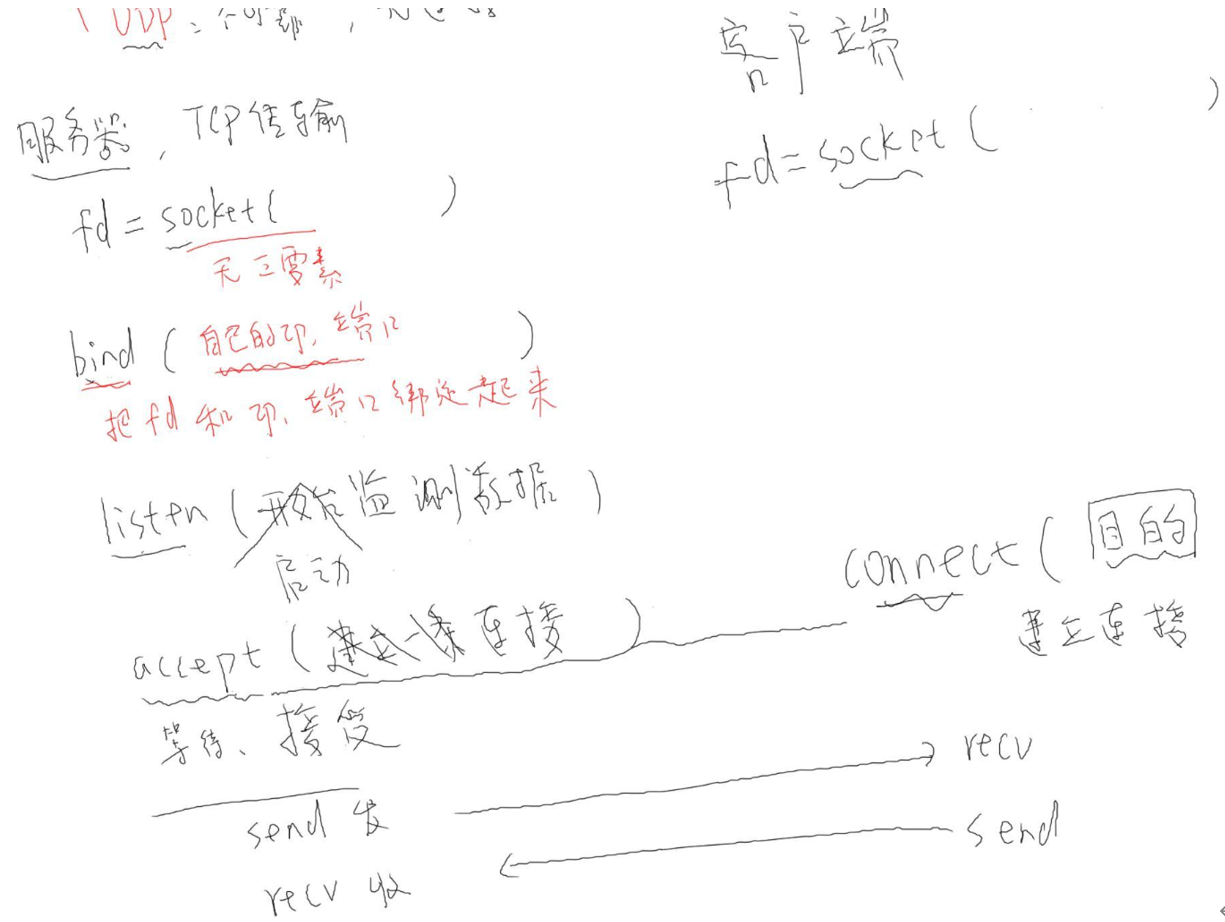 UDP：不可靠，
服务器，TCP传输
fd = socket( )
无三要素
bind ( 自己的IP、端口 )
把fd和IP、端口绑定起来
listen (开始监测数据 )
启动
accept (建立一条连接 )
等待、接受
send 发
recv 收
客户端
fd = socket ( )
connect ( 目的
建立连接
recv
send